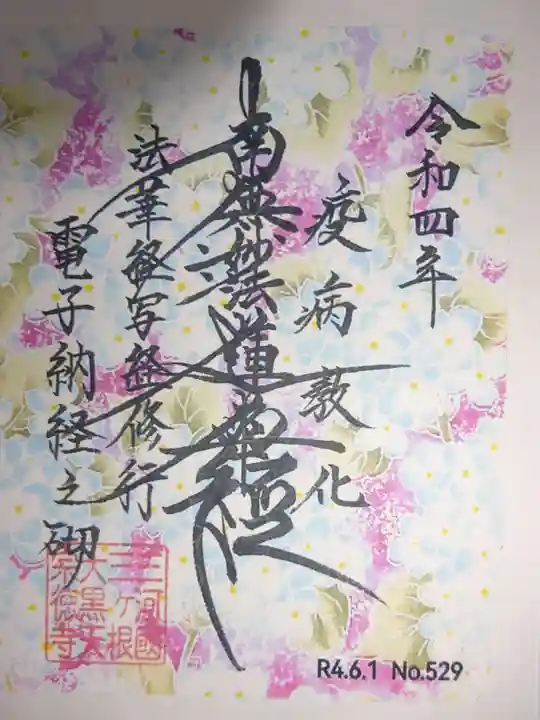 令和四年
疫病教化
南無妙法蓮華経
法華経写経修行
電子納経之砌
三河國
三ヶ根
大黒天
宗徳寺
R4.6.1 No.529